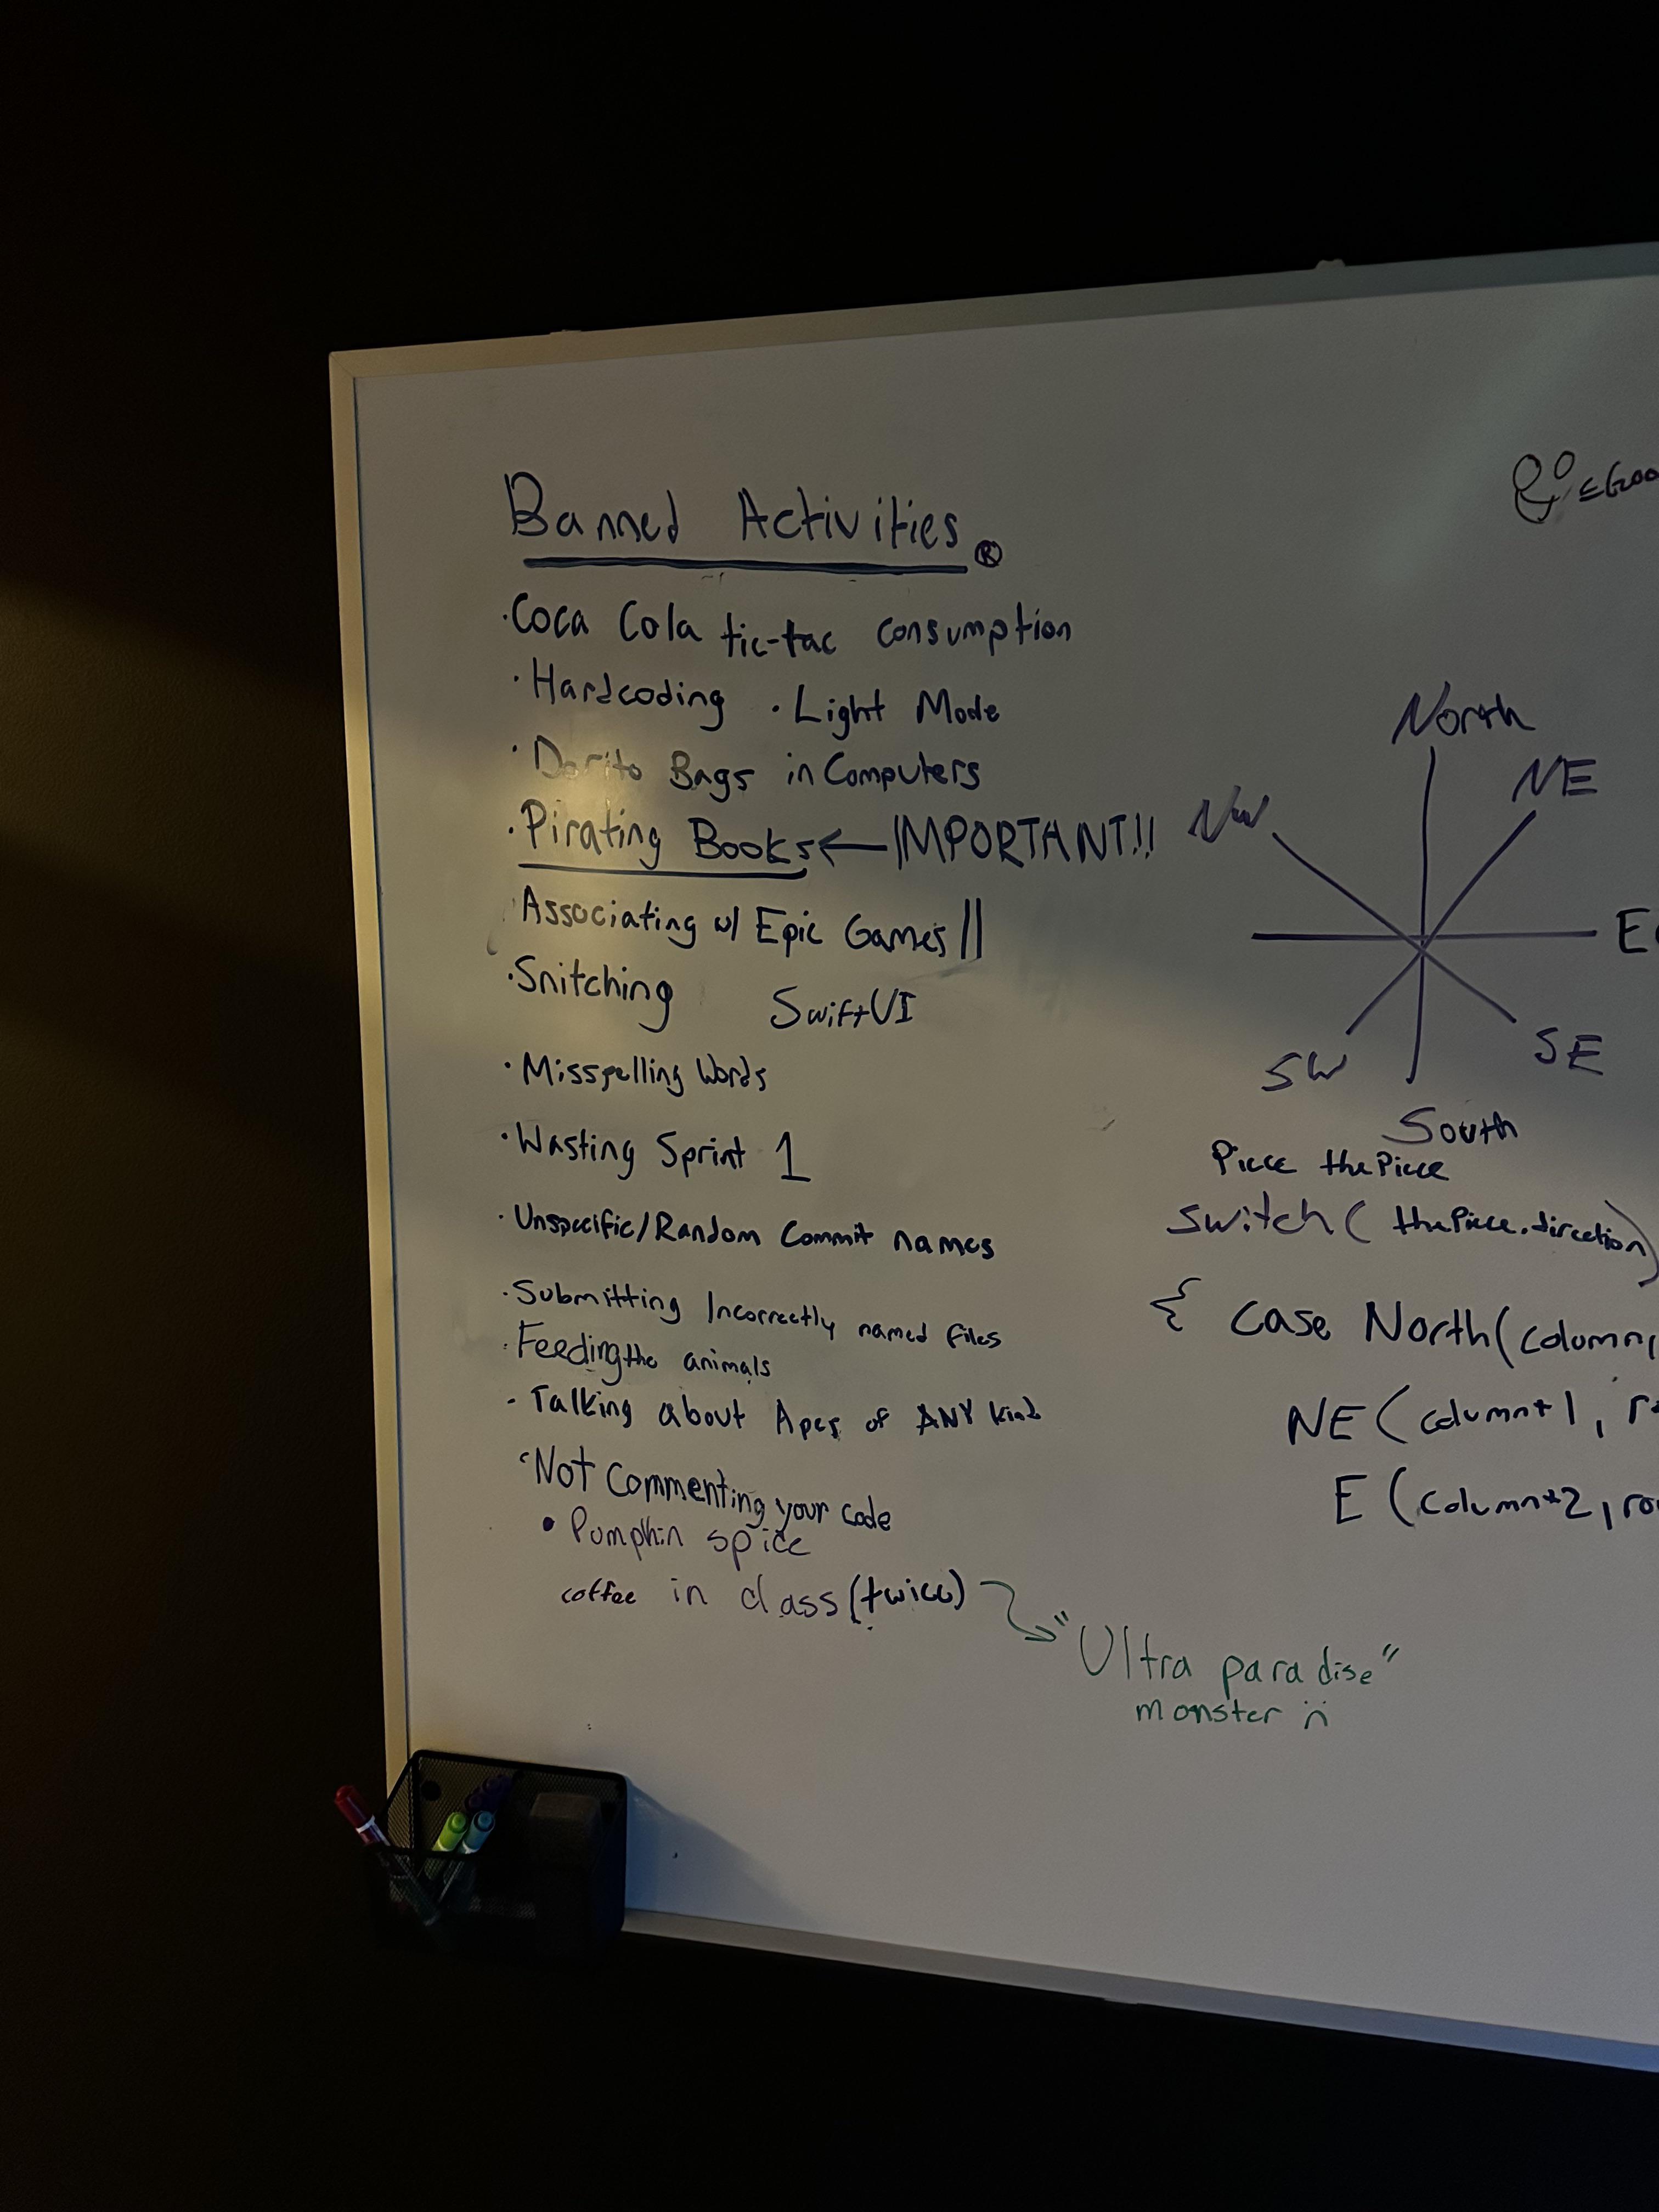 Banned Activities ®
· Coca Cola tic-tac consumption
· Hardcoding · Light Mode
· Dorito Bags in Computers
· Pirating Books ← IMPORTANT!!
· Associating w/ Epic Games ||
· Snitching SwiftUI
· Misspelling Words
· Wasting Sprint 1
· Unspecific/Random Commit names
· Submitting Incorrectly named files
· Feeding the animals
· Talking about Apes of ANY kind
· Not Commenting your code
• Pumpkin spice
coffee in class (twice)
"Ultra paradise"
monster
North
NW
NE
SW
SE
South
Piece thePiece
switch( thePiece.direction)
{ case North(column,
NE (column+1,
E (column+2,